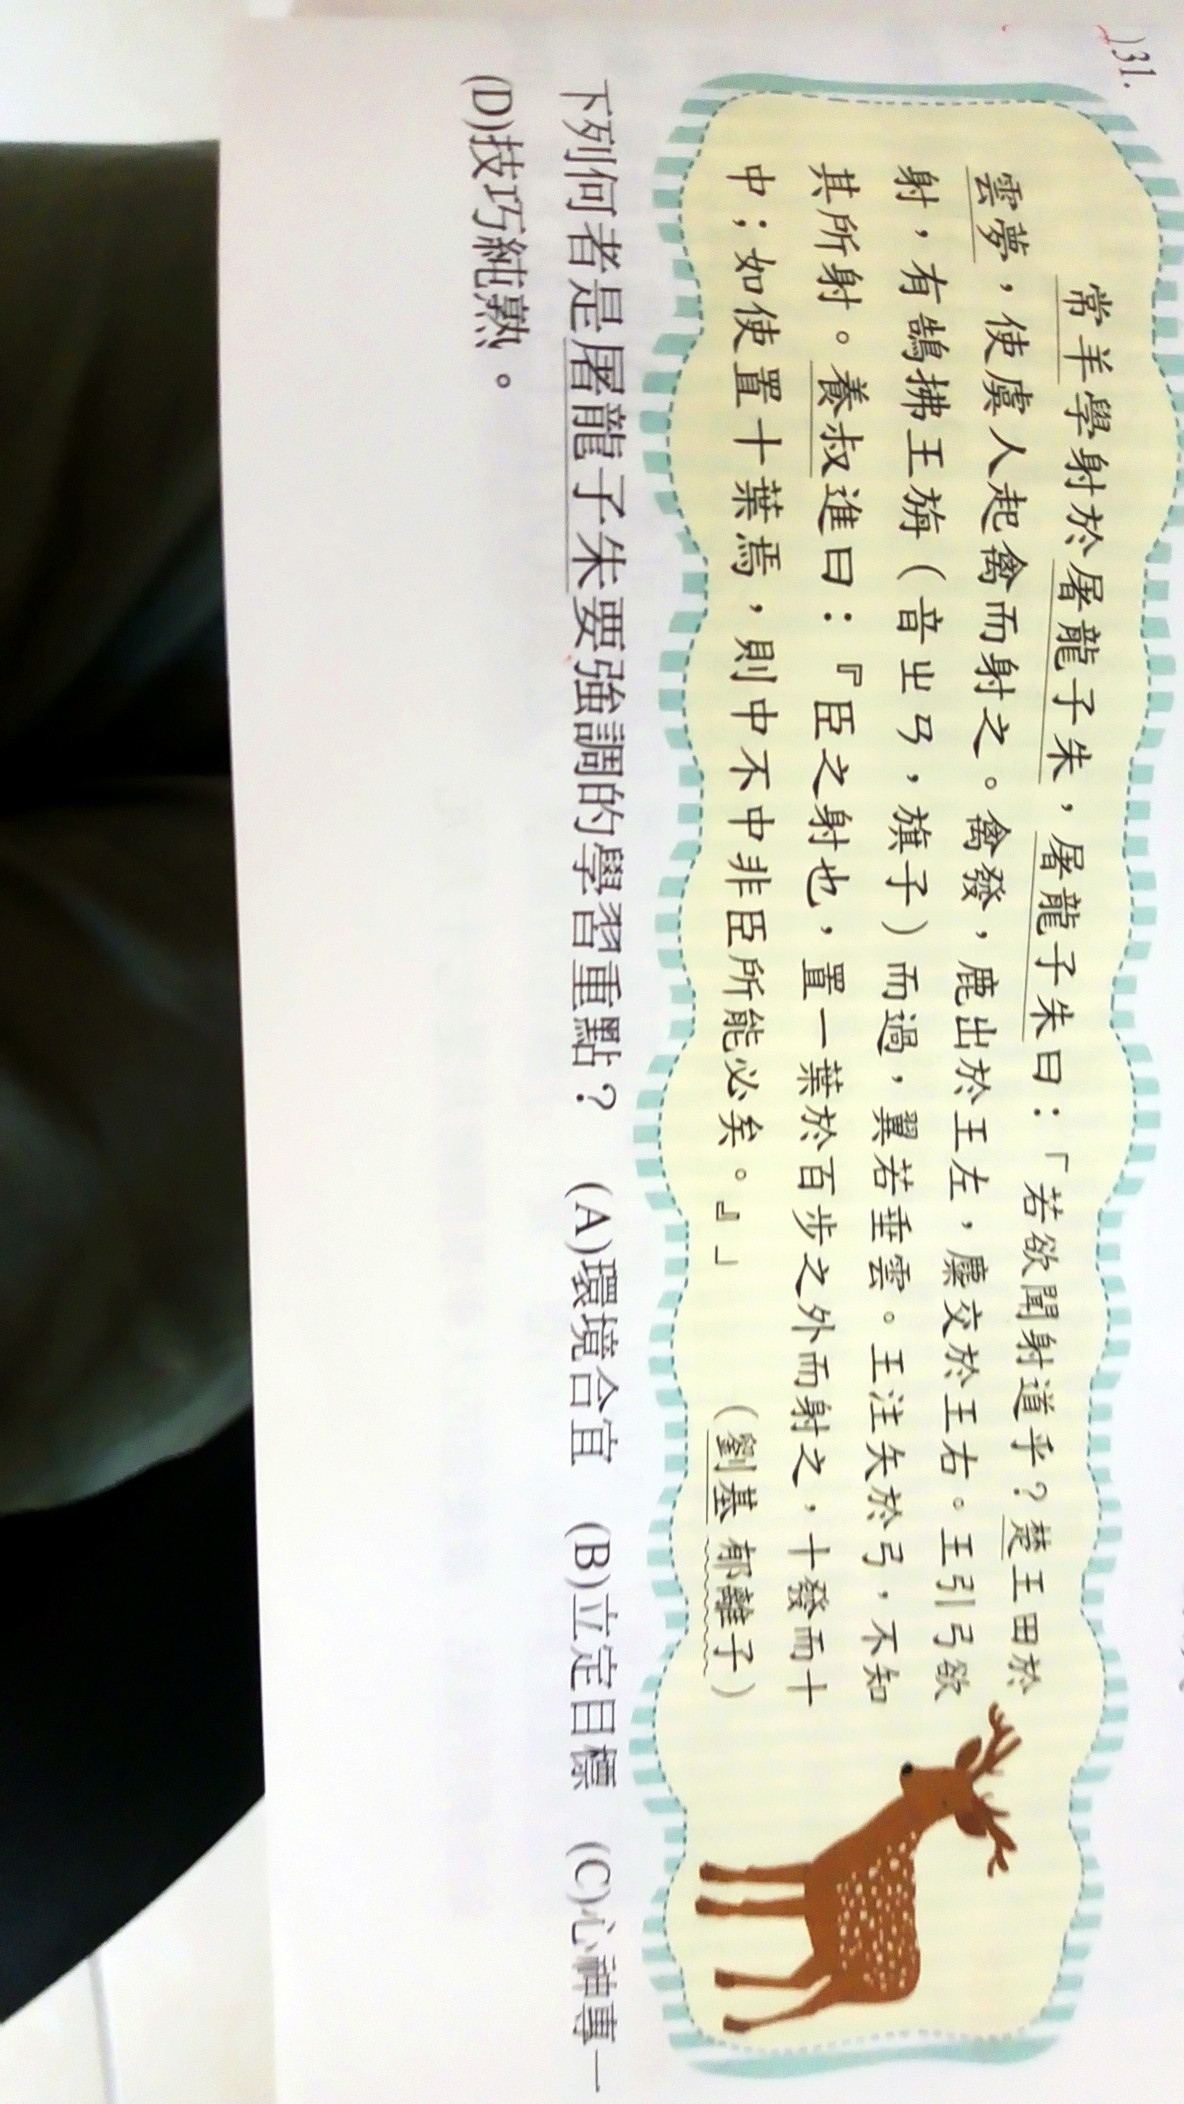 )31.
常羊學射於屠龍子朱，屠龍子朱曰：「若欲聞射道乎？楚王田於
雲夢，使虞人起禽而射之。禽發，鹿出於王左，麋交於王右。王引弓欲
射，有鵠拂王旃（音ㄓㄢ，旗子）而過，翼若垂雲。王注矢於弓，不知
其所射。養叔進曰：『臣之射也，置一葉於百步之外而射之，十發而十
中；如使置十葉焉，則中不中非臣所能必矣。』」　（劉基 郁離子）
下列何者是屠龍子朱要強調的學習重點？　(A)環境合宜　(B)立定目標　(C)心神專一
(D)技巧純熟。